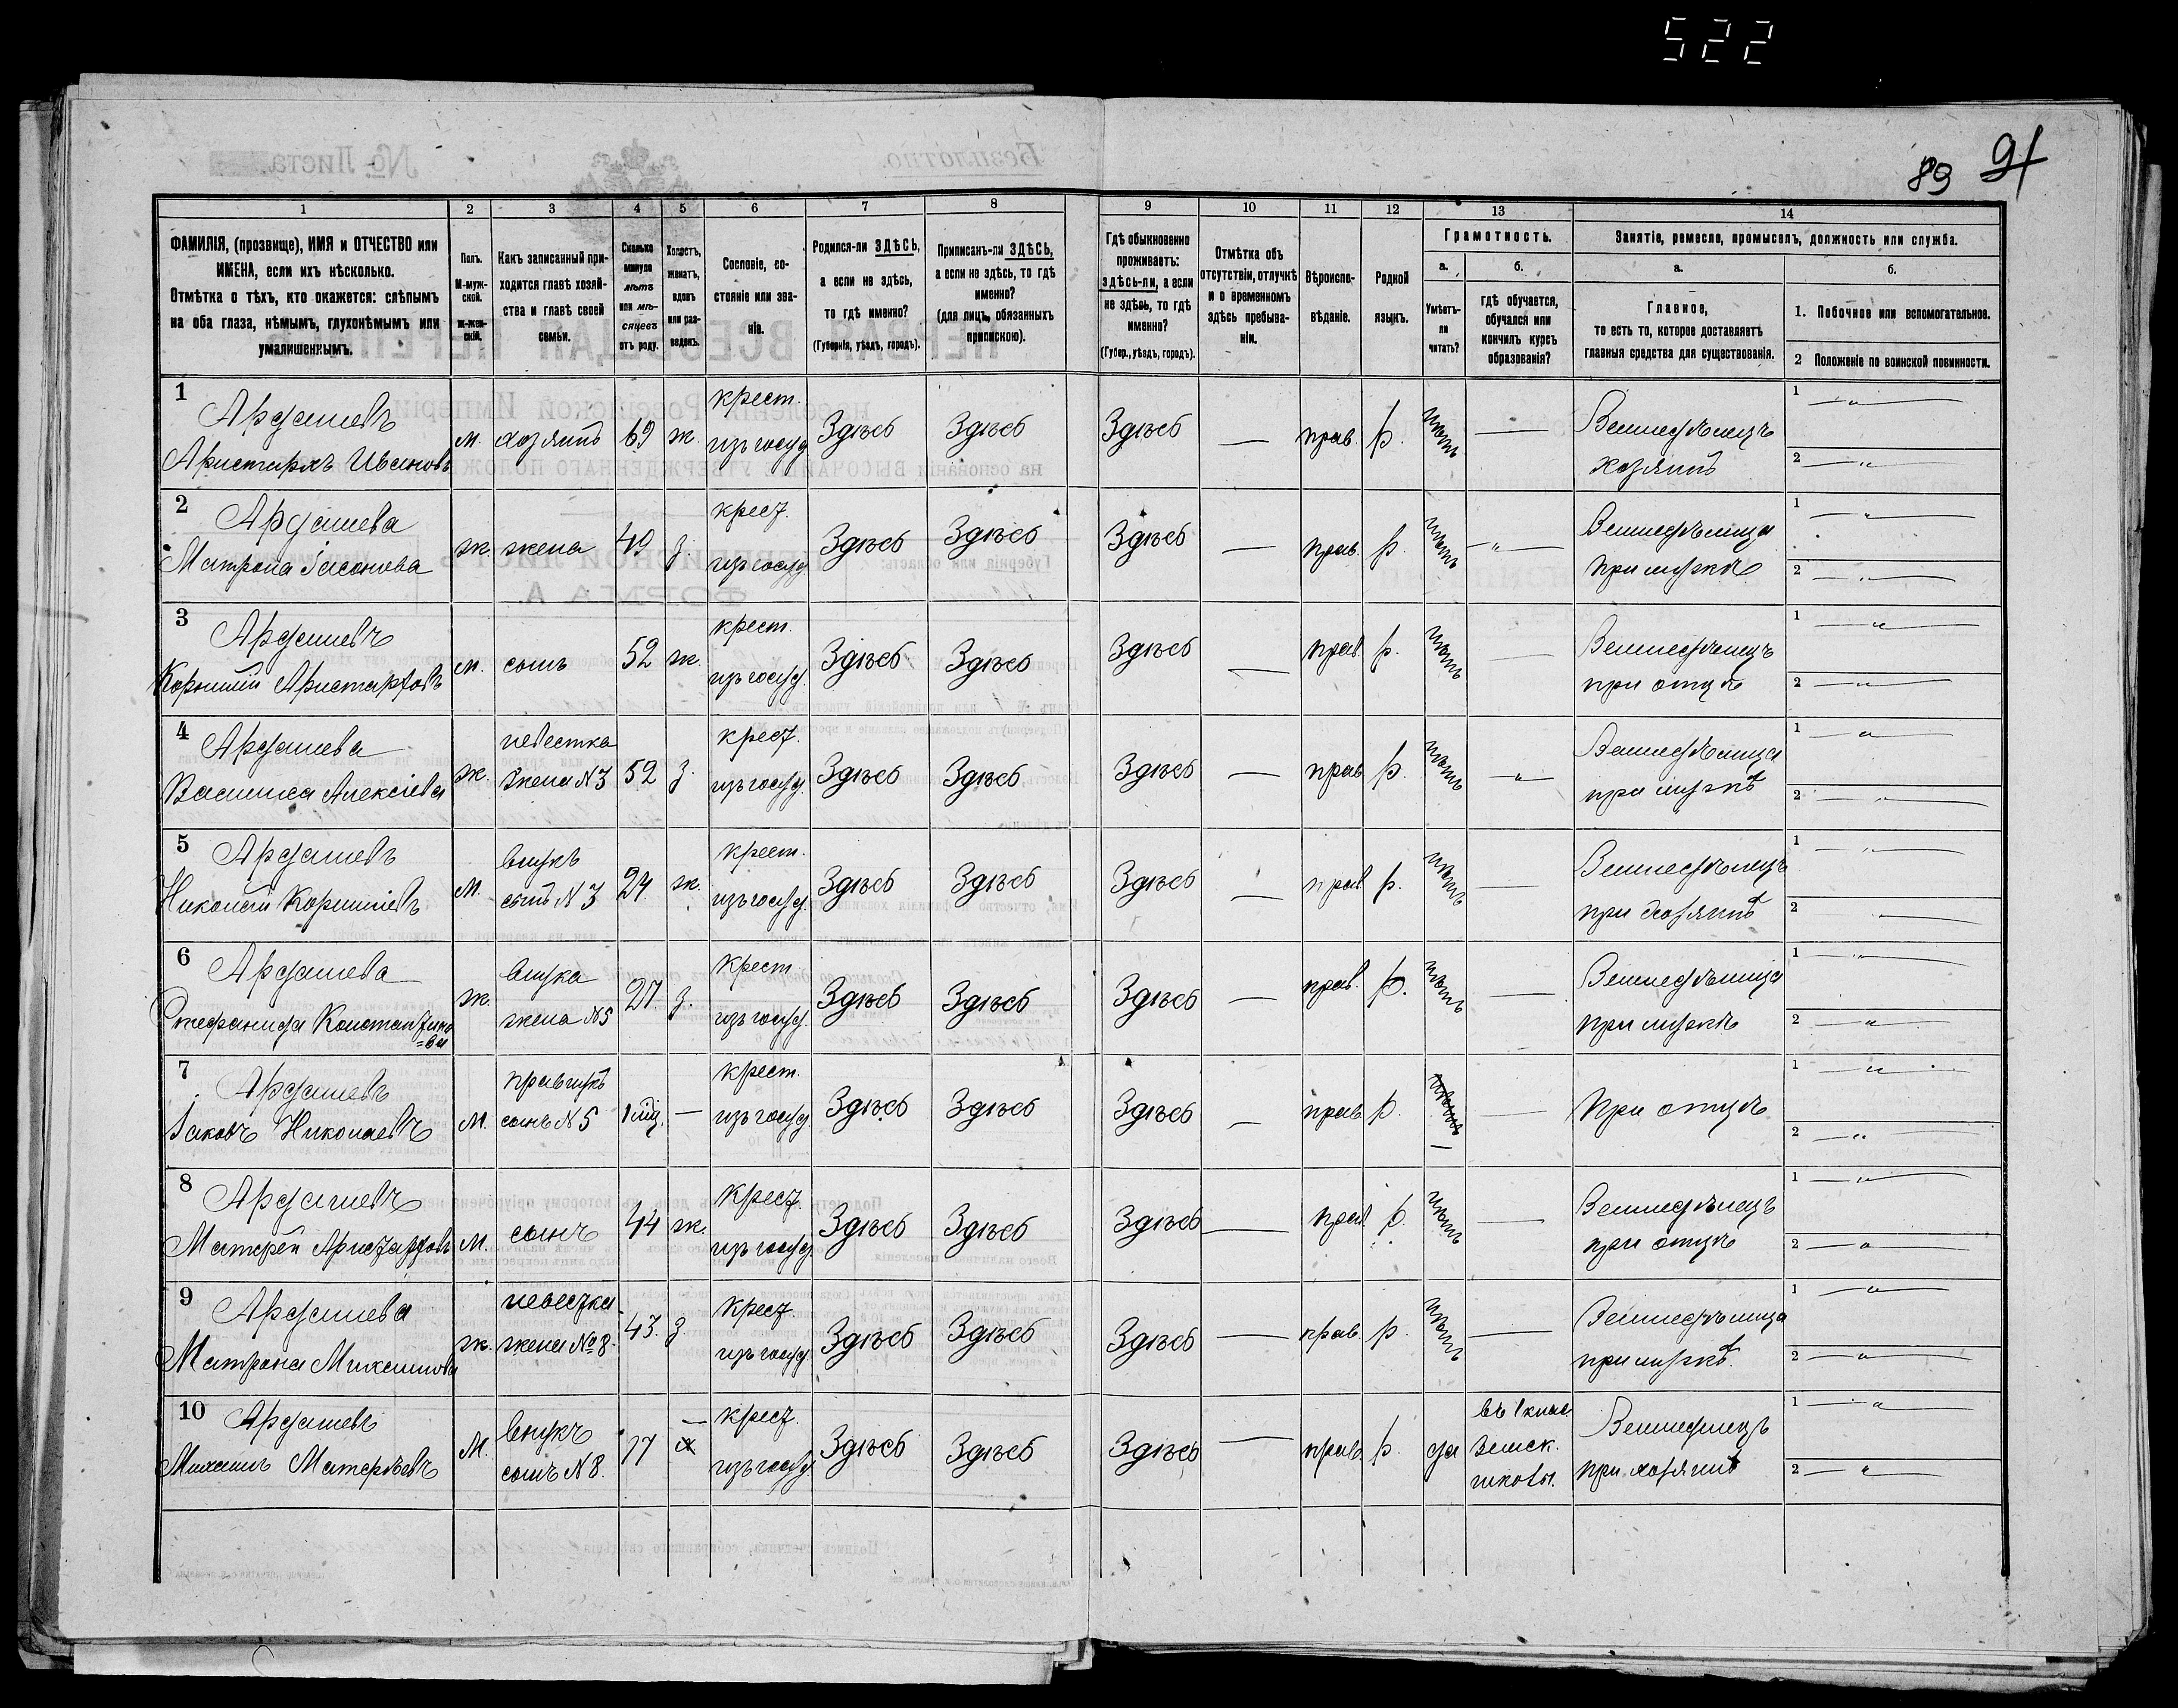 522
89 91
1 2 3 4 5 6 7 8 9 10 11 12 13 14
ФАМИЛІЯ, (прозвище), ИМЯ и ОТЧЕСТВО или
ИМЕНА, если ихъ нѣсколько.
Отмѣтка о тѣхъ, кто окажется: слѣпымъ
на оба глаза, нѣмымъ, глухонѣмымъ или
умалишеннымъ.
Полъ.
М-муж-
ской.
Ж-жен-
скій.
Какъ записанный при-
ходится главѣ хозяй-
ства и главѣ своей
семьи.
Сколько
минуло
лѣтъ
или мѣ-
сяцевъ
отъ роду.
Холостъ,
женатъ,
вдовъ
или раз-
веденъ.
Сословіе, со-
стояніе или зва-
ніе.
Родился-ли ЗДѢСЬ,
а если не здѣсь,
то гдѣ именно?
(Губернія, уѣздъ, городъ).
Приписанъ-ли ЗДѢСЬ,
а если не здѣсь, то гдѣ
именно?
(для лицъ, обязанныхъ
припискою).
Гдѣ обыкновенно
проживаетъ:
здѣсь-ли, а если
не здѣсь, то гдѣ
именно?
(Губер., уѣздъ, городъ).
Отмѣтка объ
отсутствіи, отлучкѣ
и о временномъ
здѣсь пребыва-
ніи.
Вѣроиспо-
вѣданіе.
Родной
языкъ.
Грамотность.
а.
Умѣетъ-
ли
читать?
б.
гдѣ обучается,
обучался или
кончилъ курсъ
образованія?
Занятіе, ремесло, промыселъ, должность или служба.
а.
Главное,
то есть то, которое доставляетъ
главныя средства для существованія.
б.
1. Побочное или вспомогательное.
2 Положеніе по воинской повинности.
1 Ардашевъ
Аристархъ Ивановъ
м. хозяинъ 69 ж.
крест.
изъ госуд.
Здѣсь Здѣсь Здѣсь — прав. р. нѣтъ —
Земледѣлецъ
хозяинъ
1 — „ —
2 — „ —
2 Ардашева
Матрона Іасонова
ж. жена 49 з.
крест.
изъ госуд.
Здѣсь Здѣсь Здѣсь — прав. р. нѣтъ — „ —
Земледѣлица
при мужѣ
1 — „ —
2 — „ —
3 Ардашевъ
Корнилій Аристарховъ
м. сынъ 52 ж.
крест.
изъ госуд.
Здѣсь Здѣсь Здѣсь — прав. р. нѣтъ —
Земледѣлецъ
при отцѣ
1 — „ —
2 — „ —
4 Ардашева
Василиса Алексіева
ж.
невестка
жена N 3
52 з.
крест.
изъ госуд.
Здѣсь Здѣсь Здѣсь — прав. р. нѣтъ — „ —
Земледѣлица
при мужѣ
1 — „ —
2 — „ —
5 Ардашевъ
Николай Корниліевъ
м.
внукъ
сынъ N 3
24 ж.
крест.
изъ госуд.
Здѣсь Здѣсь Здѣсь — прав. р. нѣтъ —
Земледѣлецъ
при хозяинѣ
1 — „ —
2 — „ —
6 Ардашева
Стефанида Константино
=ва
ж.
внука
жена N 5
27 з.
крест.
изъ госуд.
Здѣсь Здѣсь Здѣсь — прав. р. нѣтъ —
Земледѣлица
при мужѣ
1 — „ —
2 — „ —
7 Ардашевъ
Іаковъ Николаевъ
м.
правнукъ
сынъ N 5
1 мц. —
крест.
изъ госуд.
Здѣсь Здѣсь Здѣсь — прав. р. нѣтъ — —
При отцѣ
1 — „ —
2 — „ —
8 Ардашевъ
Матфей Аристарховъ
м. сынъ 44 ж.
крест.
изъ госуд.
Здѣсь Здѣсь Здѣсь — прав. р. нѣтъ —
Земледѣлецъ
при отцѣ
1 — „ —
2 — „ —
9 Ардашева
Матрона Михаилова
ж.
невестка
жена № 8.
43. з
крест.
изъ госуд.
Здѣсь Здѣсь Здѣсь — прав. р. нѣтъ —
Земледѣлица
при мужѣ.
1 — „ —
2 — „ —
10 Ардашевъ
Михаилъ Матфѣевъ
м.
внукъ
сынъ N 8.
17 —
крест.
изъ госуд.
Здѣсь Здѣсь Здѣсь — прав. р. да
въ 1 клас.
земск.
школы.
Земледѣлецъ
при хозяинѣ
1 — „ —
2 — „ —